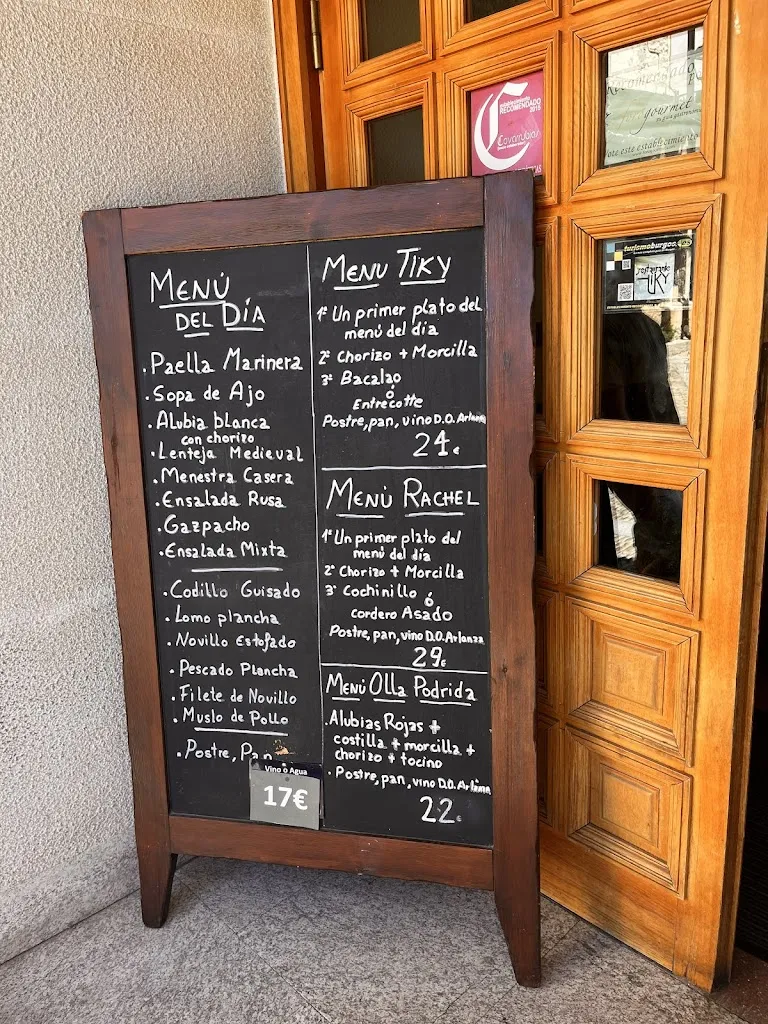 MENÚ
DEL DÍA
. Paella Marinera
. Sopa de Ajo
. Alubia blanca
con chorizo
. Lenteja Medieval
. Menestra Casera
. Ensalada Rusa
. Gazpacho
. Ensalada Mixta
. Codillo Guisado
. Lomo plancha
. Novillo Estofado
. Pescado Plancha
. Filete de Novillo
. Muslo de Pollo
. Postre, Pan
Vino o Agua
17€
MENU TIKY
1º Un primer plato del
menú del día
2º Chorizo + Morcilla
3º Bacalao
ó
Entrecotte
Postre, pan, vino D.O. Arlanza
24€
MENÚ RACHEL
1º Un primer plato del
menú del día
2º Chorizo + Morcilla
3º Cochinillo ó
cordero Asado
Postre, pan, vino D.O. Arlanza
29€
MENÚ OLLA PODRIDA
. Alubias Rojas +
costilla + morcilla +
chorizo + tocino
. Postre, pan, vino D.O. Arlanza
22€
establecimiento
RECOMENDADO
2015
Covarrubias
Recomendado
gourmet
Vote este establecimiento
turismoburgos
restaurante
TIKY